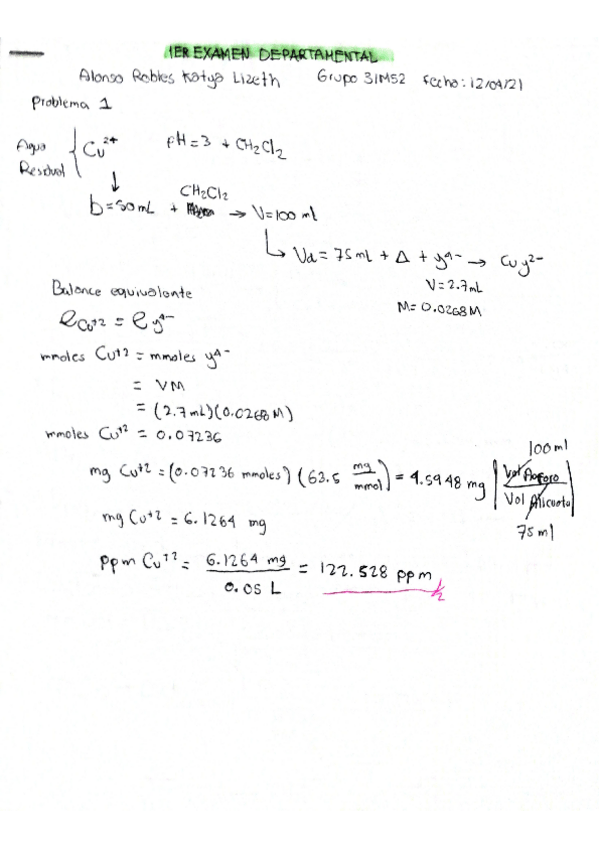 1ER EXAMEN DEPARTAMENTAL
Alonso Robles Katya Lizeth Grupo 3IM52 Fecha: 12/04/21
Problema 1
Agua Residual { Cu²⁺ pH = 3 + CH₂Cl₂
↓
b = 50 mL + CH₂Cl₂ → V = 100 ml
↳ Va = 75 ml + Δ + y⁴⁻ → Cuy²⁻
V = 2.7 mL
M = 0.0268 M
Balance equivalente
e Cu⁺² = e y⁴⁻
mmoles Cu⁺² = mmoles y⁴⁻
= VM
= (2.7 mL)(0.0268 M)
mmoles Cu⁺² = 0.07236
mg Cu⁺² = (0.07236 mmoles) (63.5 mg/mmol) = 4.5948 mg | Vol Aforo / Vol Alicuota |
100 ml
75 ml
mg Cu⁺² = 6.1264 mg
ppm Cu⁺² = 6.1264 mg / 0.05 L = 122.528 ppm